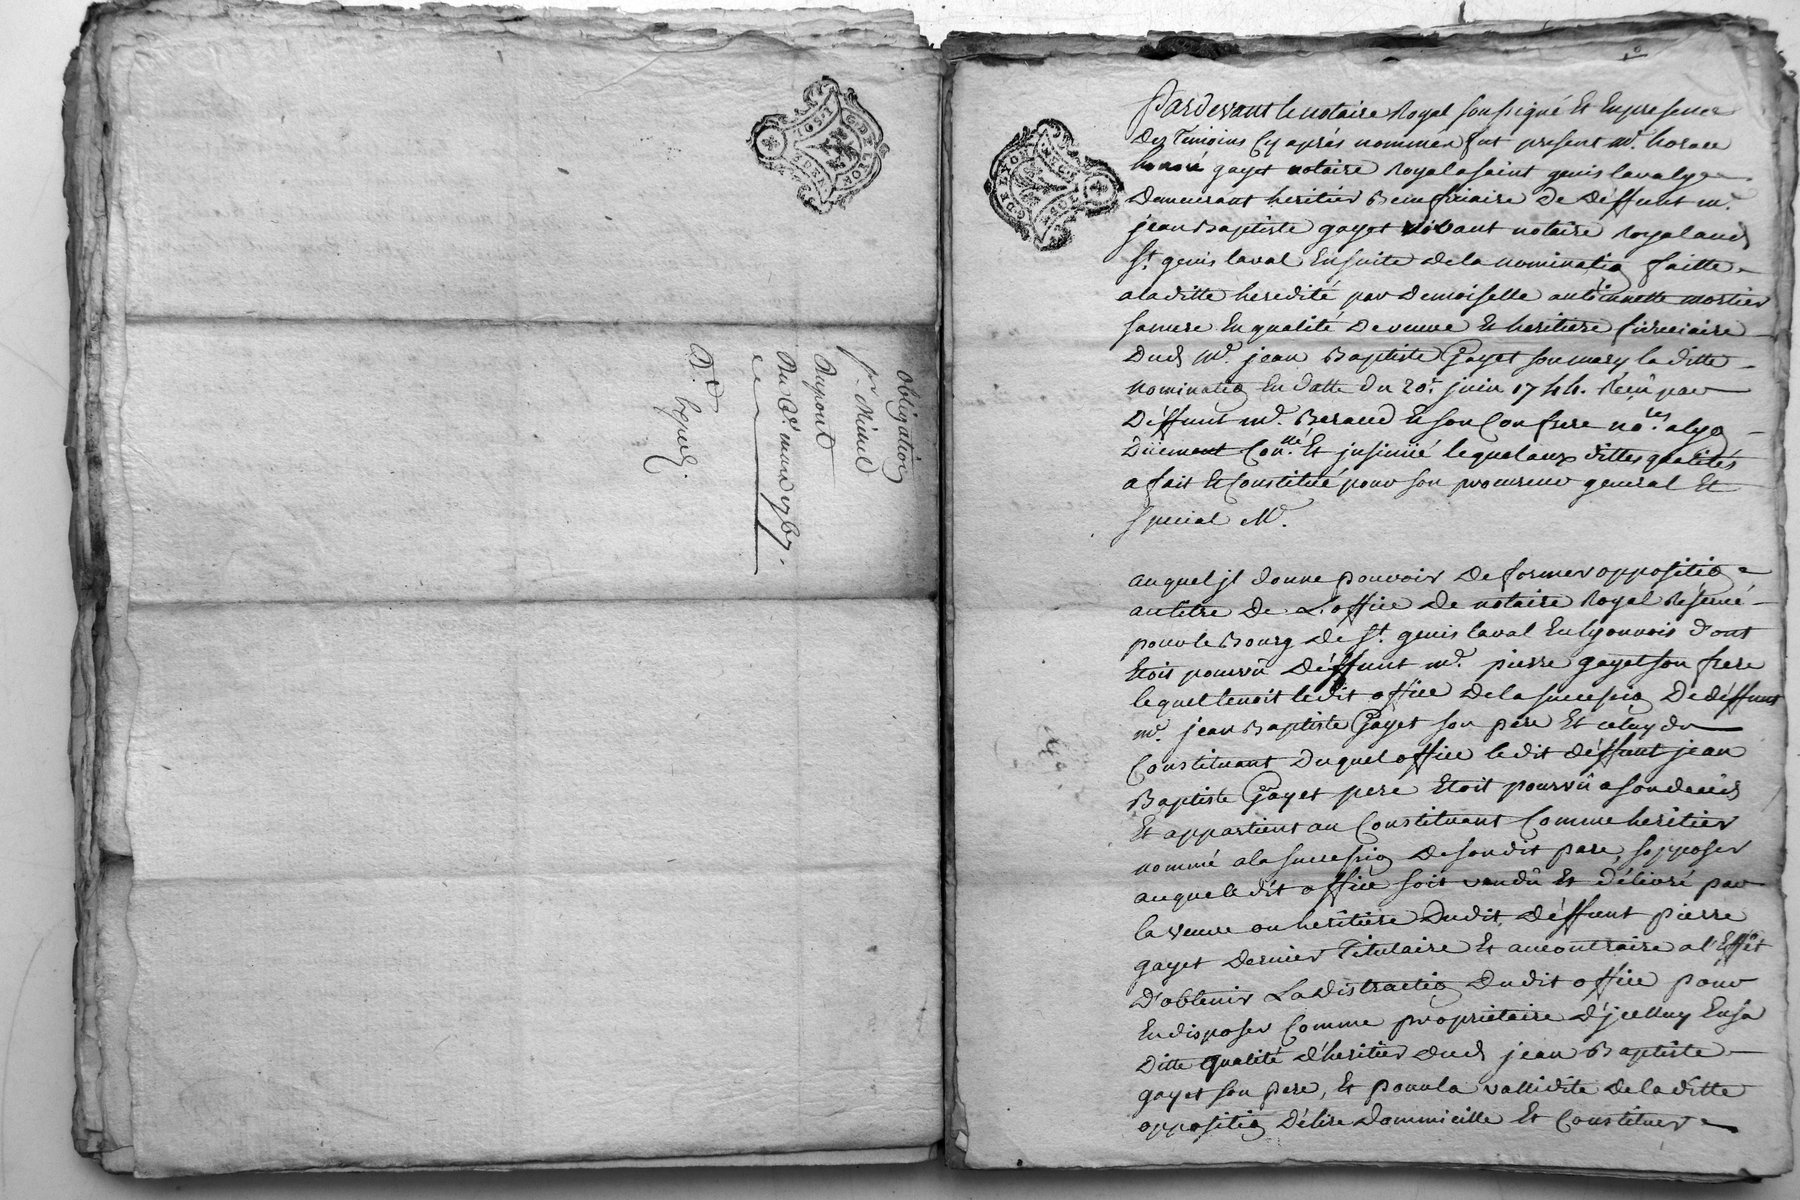 Obligation
pr. Nicaud
Dupond
Du 8e. mars 1767.
D. d
Pardevant le notaire Royal soussigné Et En presence
Des Témoins Cy après nommés fut present Me. horace
honoré gayet notaire Royal a saint genis laval y
Demeurant heritier Beneficiaire De Déffunt me.
jean Baptiste gayet vivant notaire Royal aud
St. genis laval Ensuite de la nominatio faitte
a la ditte heredité par Demoiselle antoinette mortier
sa mere En qualité De veuve Et heritiere fiduciaire
Dud Me. jean Baptiste Gayet son mary la ditte
nominatio En datte du 20e. juin 1744. Reçu par
Déffunt me. Beraud Et son Confrere nores. a lyo
Düement Conlé. Et jnsinüé lequel aux dittes qualités
a fait Et Constitué pour son procureur general Et
special Me.
auquel jl donne pouvoir De former oppositio
au titre De L'office De notaire Royal Reservé
pour le Bourg De St. genis laval En lyonnois d'ont
Etoit pourvû Déffunt me. pierre gayet son frere
lequel tenoit le dit office De la successio De déffunt
me. jean Baptiste Gayet son père Et celuy du
Constituant Duquel office le dit déffunt jean
Baptiste Gayet pere Etoit pourvû a son deceds
Et appartient au Constituant Comme heritier
nommé a la successio De son dit pere, s'opposer
a ce que le dit office soit vendû Et délivré par
la veuve ou heritiere Dudit Déffunt pierre
gayet Dernier Titulaire Et au contraire a l'Effét
D'obtenir La Distractio Dudit office pour
En disposer Comme proprietaire D'jcelluy En sa
Ditte qualité d'heritier dud jean Baptiste
gayet son pere, Et pour la vallidité De la ditte
oppositio D'élire Dommicille Et Constituer